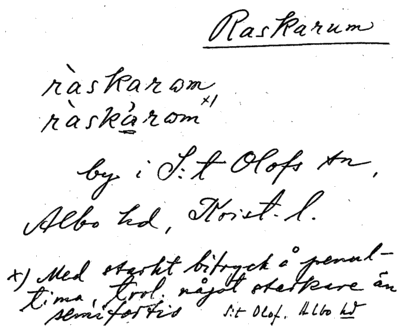 Raskarum
ràskarom
ràskàrom x)
by i S:t Olofs sn,
Albo hd, Krist. l.
x) Med starkt bitryck å penul-
tima, trol. något starkare än
semifortis S:t Olof. Albo hd